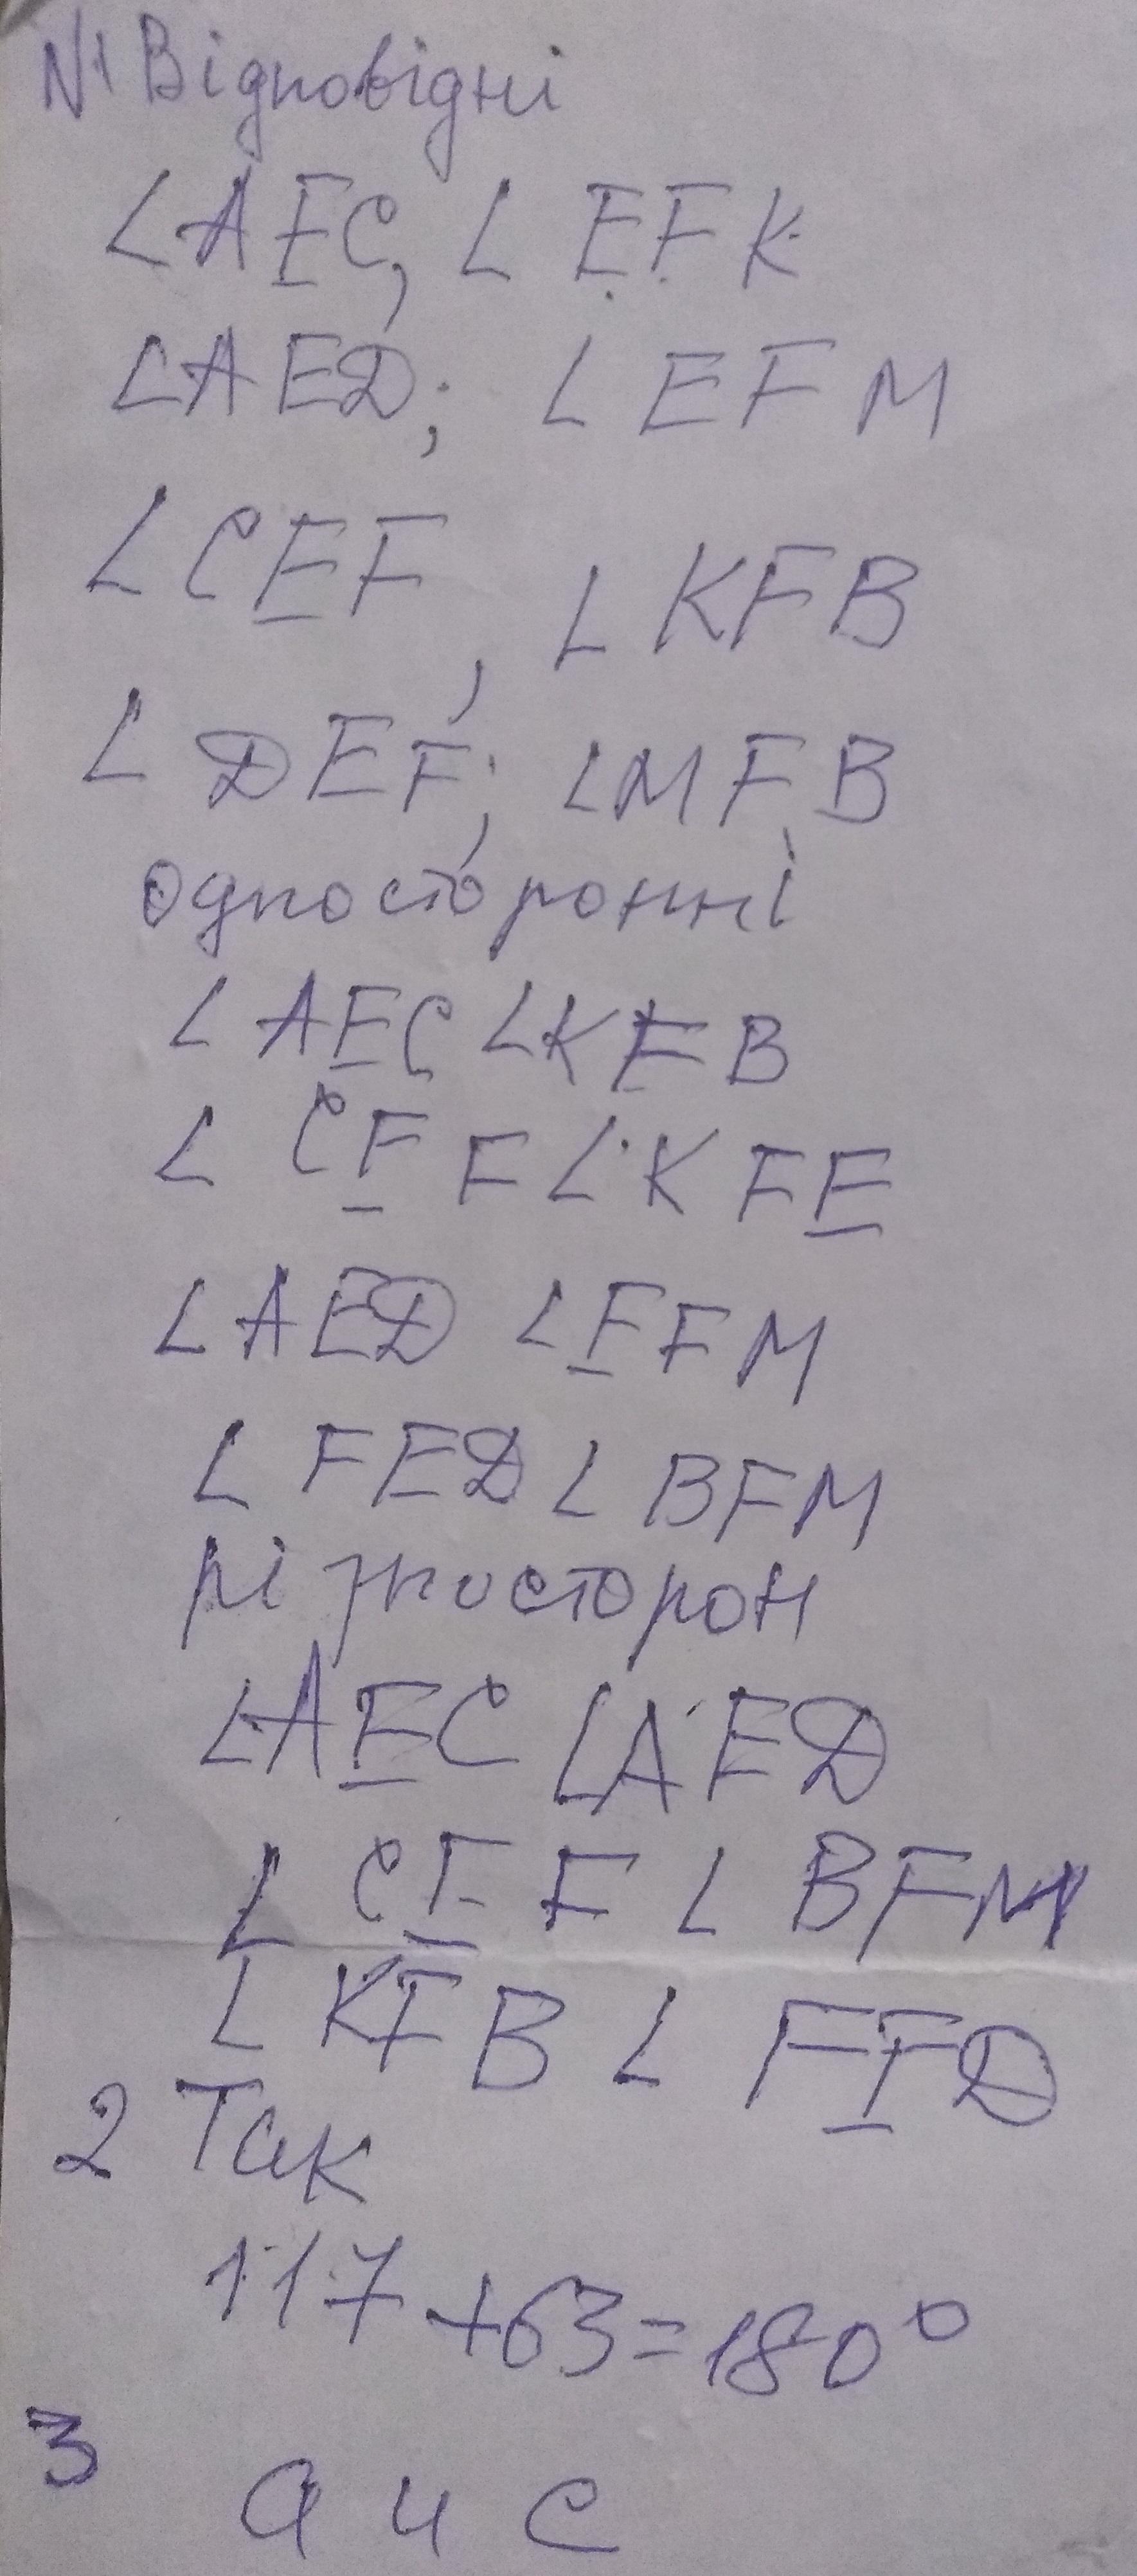 N1 Відповідні
∠AEC, ∠EFK
∠AED; ∠EFM
∠CEF, ∠KFB
∠DEF; ∠MFB
односторонні
∠AEC ∠KFB
∠CEF ∠KFE
∠AED ∠EFM
∠FED ∠BFM
різносторон
∠AEC ∠AED
∠CEF ∠BFM
∠KFB ∠FED
2 Так
117+63=180°
3
a и c